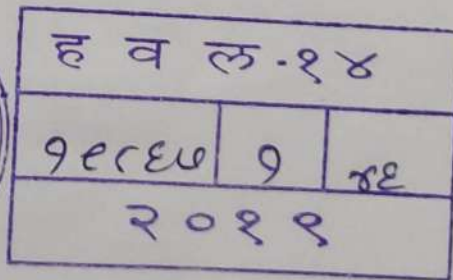 ह व ल-१४
१९८६७ १ ४६
२०१९